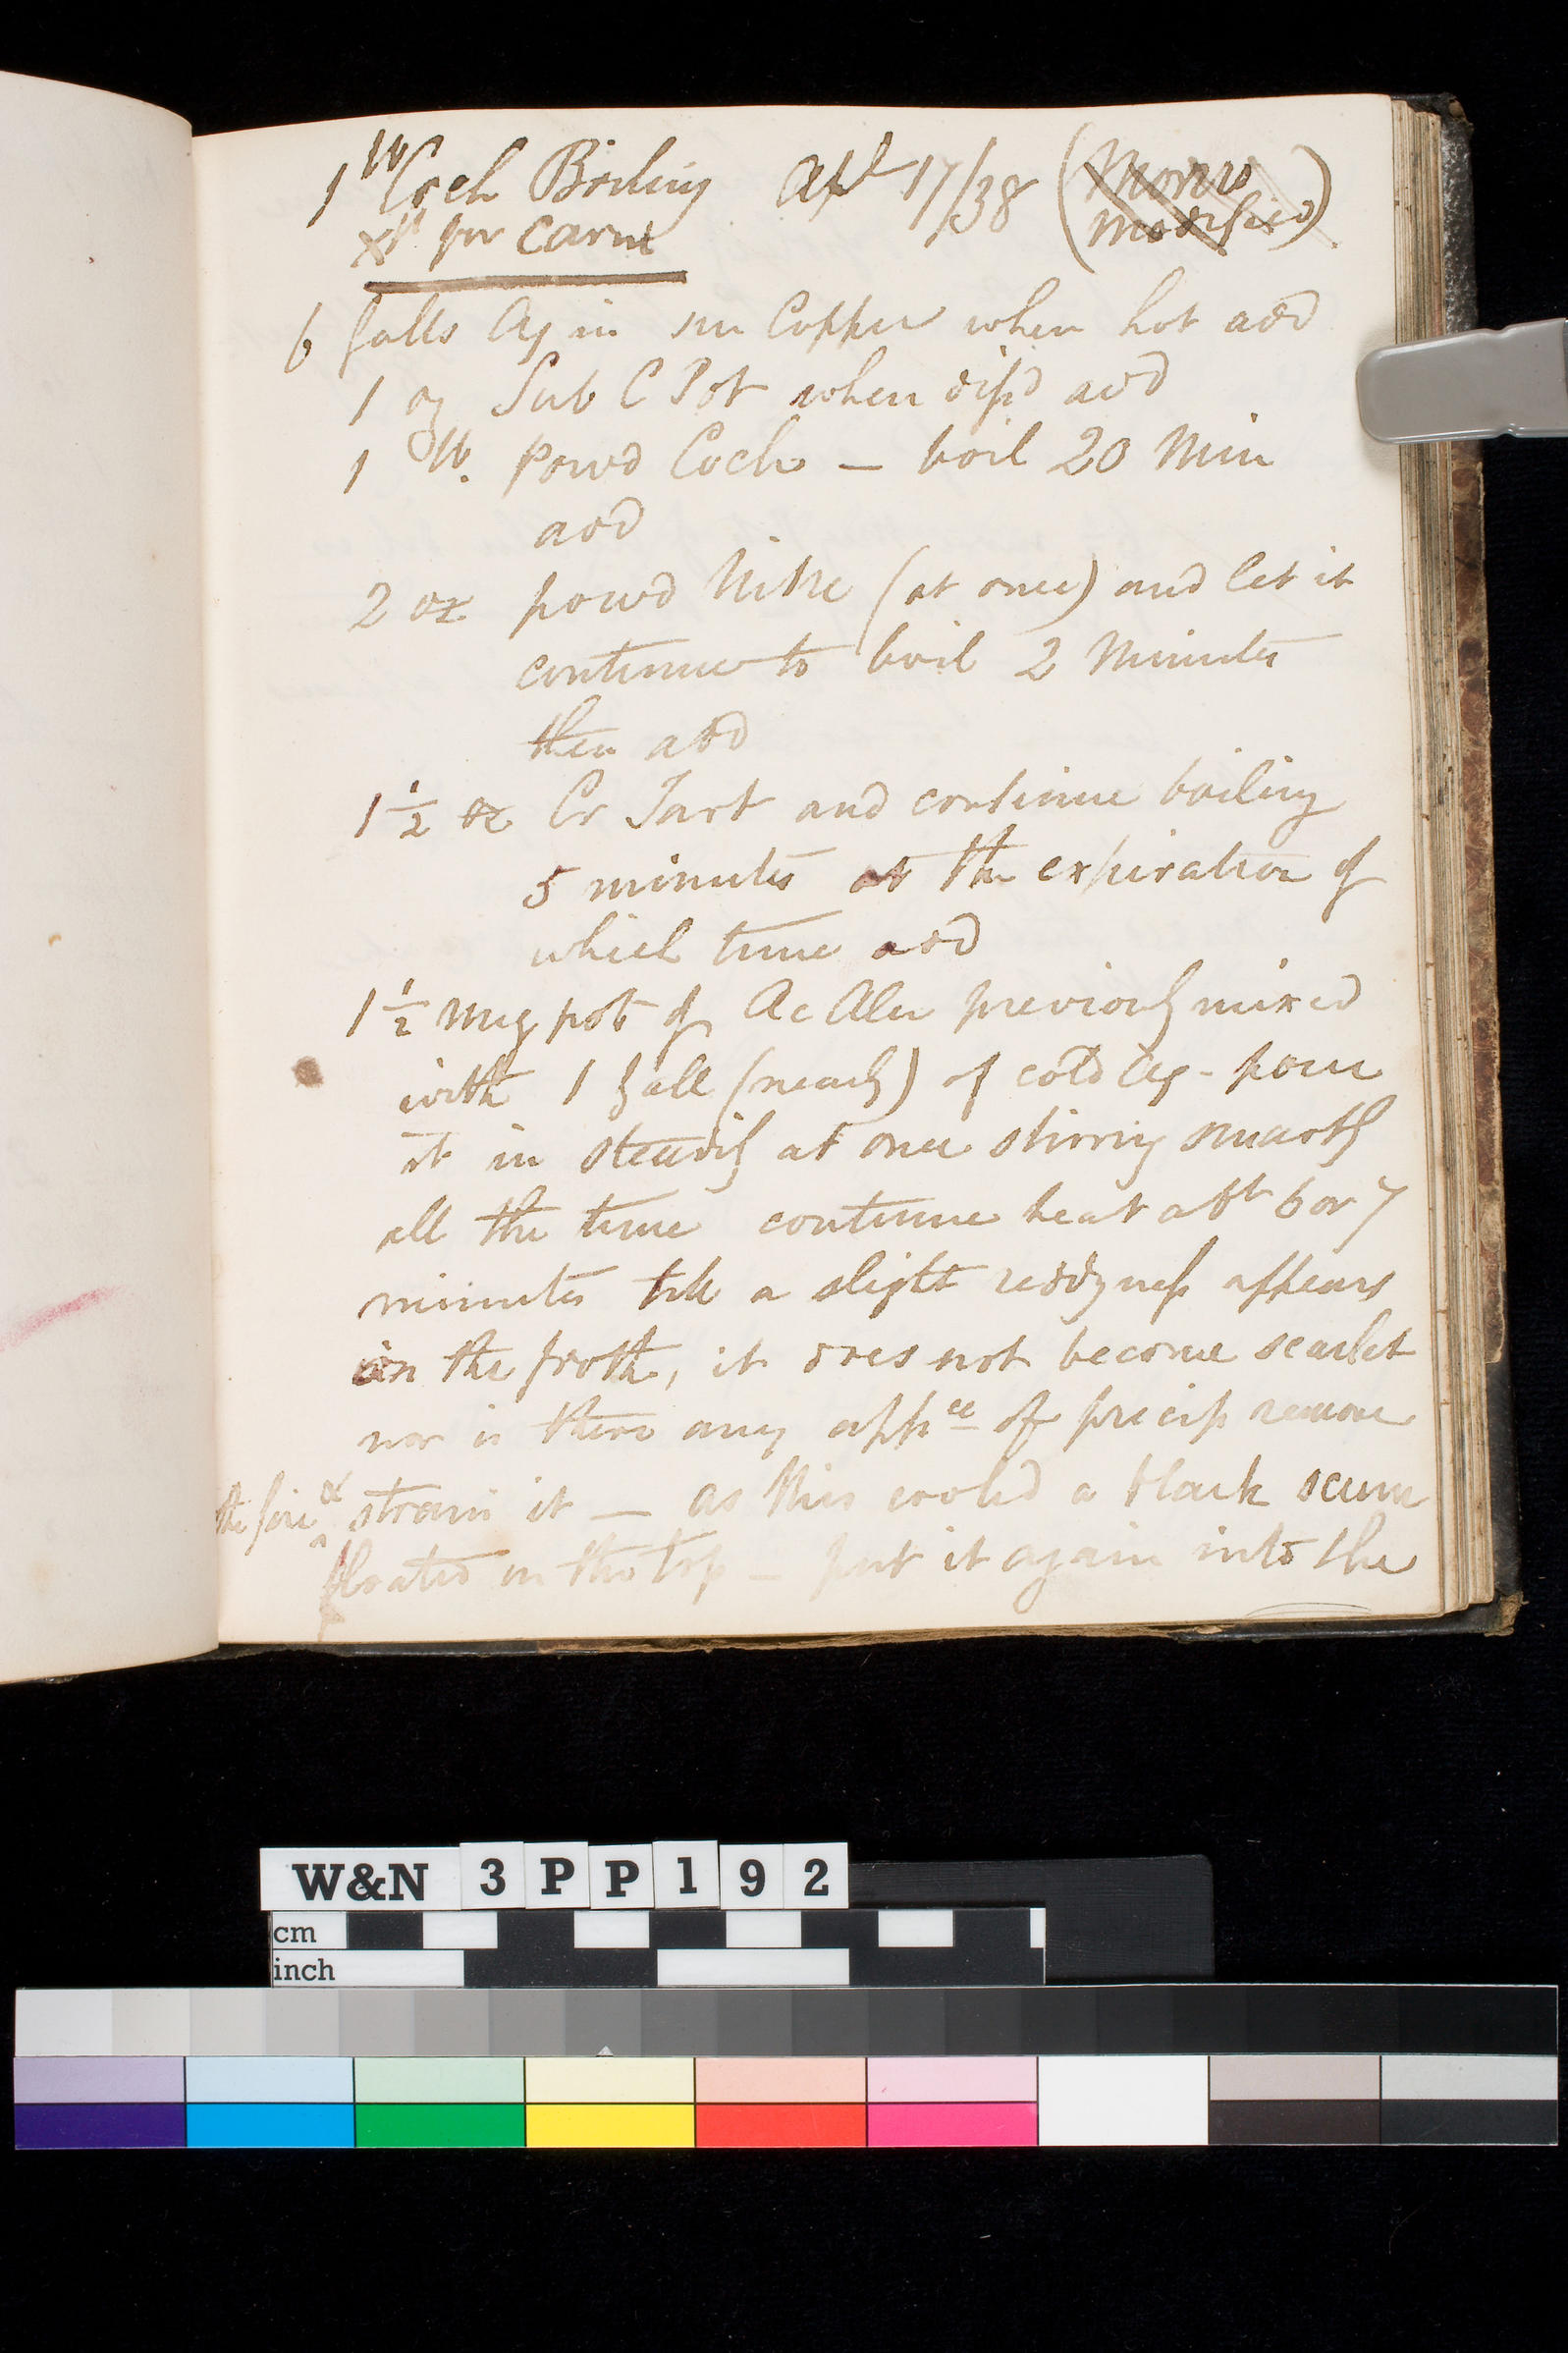 1 lb Coch Boiling Apl 17/38 (Morris
modified)
for Carm
6 Galls Aq in sm Copper when hot add
1 oz Sub C Pot when disd add
1 lb. Powd Coch — boil 20 Min
add
2 oz powd Nitre (at once) and let it
continue to boil 2 Minutes
then add
1 1/2 oz Cr Tart and continue boiling
5 minutes at the expiration of
which time add
1 1/2 Meg pots of Ac Alu previously mixed
with 1 Gall (nearly) of cold Aq - pour
it in steadily at once stirring smartly
all the time continue heat abt 6 or 7
minutes till a slight reddyness appears
in the froth, it does not become scarlet
nor is there any appce of precip remove
the fire & strain it — as this cooled a black scum
floated on the top — put it again into the
W&N 3PP192
cm
inch